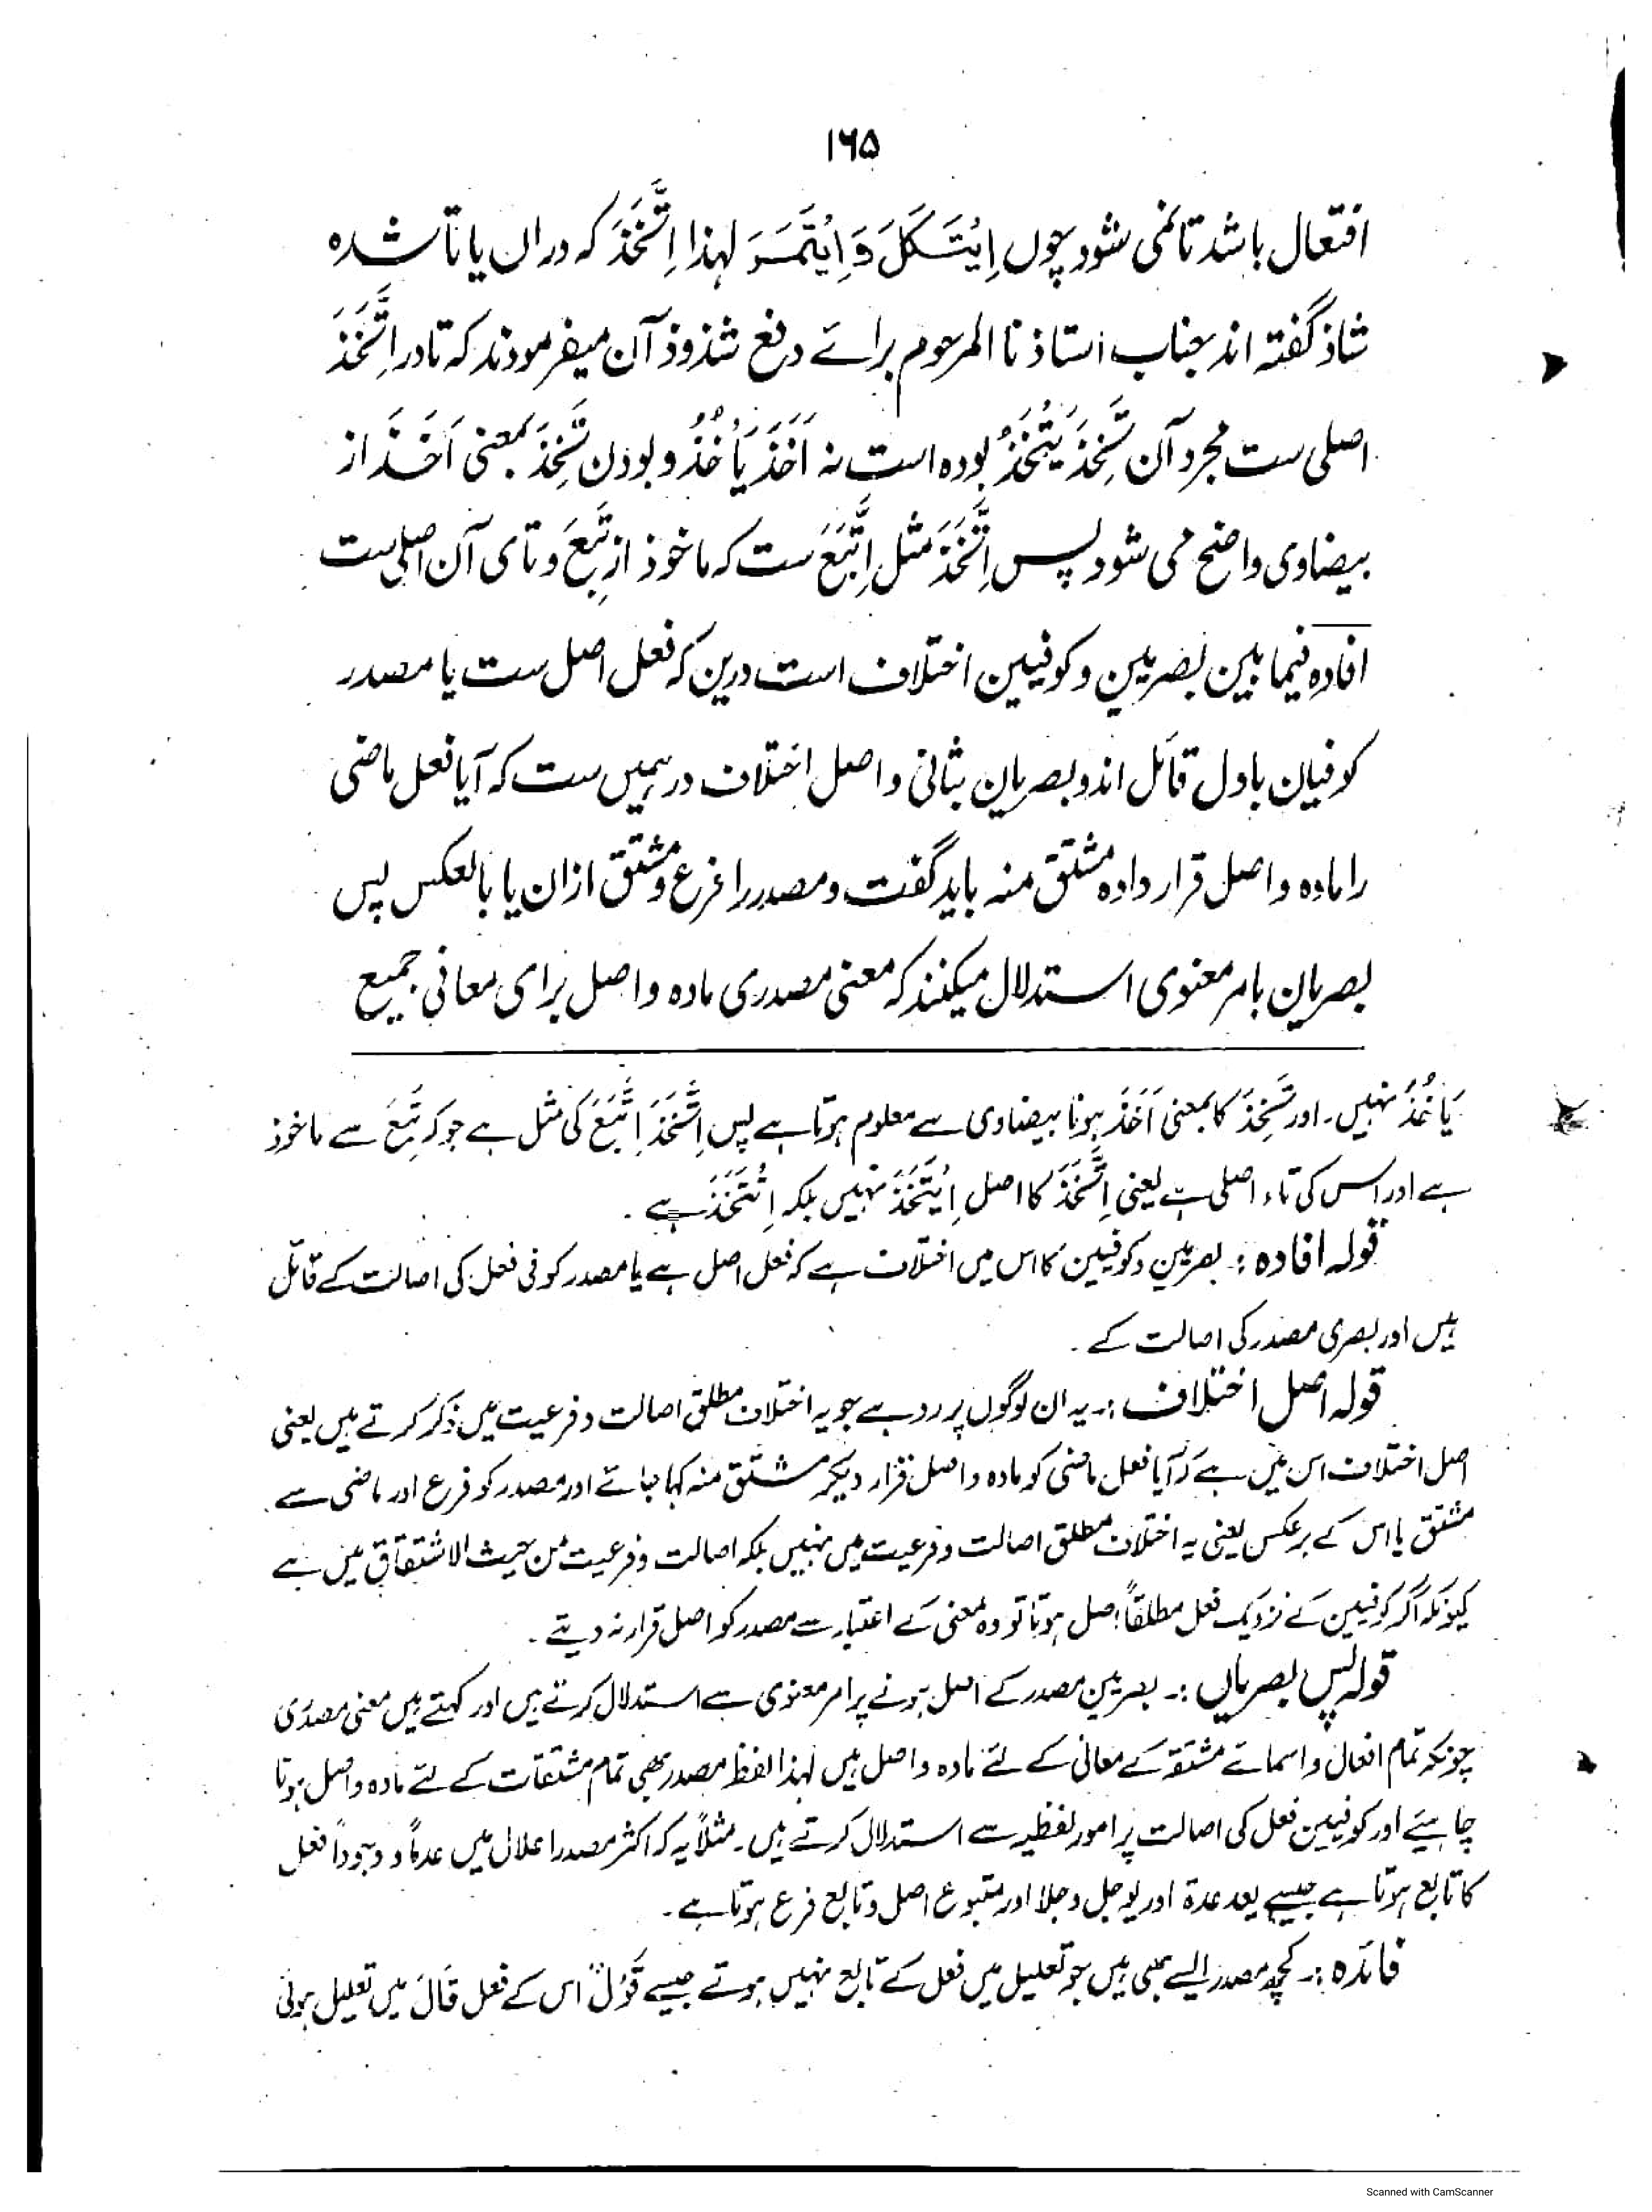 ۱۶۵
افتعال باشد تا نمی شود چوں اِیْتَکَلَ وَ اِیْتَمَرَ لہذا اِتَّخَذَ کہ دران یا تا شدہ
شاذ گفتہ اند جناب استاذ نا المرحوم برائے دفع شذوذ آن میفرمودند کہ تا در اِتَّخَذَ
اصلی ست مجرد آن تَخِذَ یَتْخَذُ بودہ است نہ اَخَذَ یَأْخُذُ و بودن تَخِذَ بمعنی اَخَذَ از
بیضاوی واضح می شود پس اِتَّخَذَ مثل اِتَّبَعَ ست کہ ماخوذ از تَبِعَ و تای آن اصلی ست
افادہ فیما بین بصریین و کوفیین اختلاف است درین کہ فعل اصل ست یا مصدر
کوفیان باول قائل اند و بصریان بثانی و اصل اختلاف در ہمیں ست کہ آیا فعل ماضی
را مادہ و اصل قرار دادہ مشتق منہ باید گفت و مصدر را فرع و مشتق ازان یا بالعکس پس
بصریان بامر معنوی استدلال میکنند کہ معنی مصدری مادہ و اصل برای معانی جمیع
یَاخُذُ نہیں۔ اور تَخِذَ کا بمعنی اَخَذَ ہونا بیضاوی سے معلوم ہوتا ہے پس اِتَّخَذَ اِتَّبَعَ کی مثل ہے جو کہ تَبِعَ سے ماخوذ
ہے اور اس کی تاء اصلی ہے یعنی اِتَّخَذَ کا اصل اِیْتَخَذَ نہیں بلکہ اِتْتَخَذَ ہے۔
قولہ افادہ :۔ بصریین و کوفیین کا اس میں اختلاف ہے کہ فعل اصل ہے یا مصدر کوفی فعل کی اصالت کے قائل
ہیں اور بصری مصدر کی اصالت کے۔
قولہ اصل اختلاف :۔ یہ ان لوگوں پر رد ہے جو یہ اختلاف مطلق اصالت و فرعیت میں ذکر کرتے ہیں یعنی
اصل اختلاف اس میں ہے کہ آیا فعل ماضی کو مادہ و اصل قرار دیکر مشتق منہ کہا جائے اور مصدر کو فرع اور ماضی سے
مشتق یا اس کے برعکس یعنی یہ اختلاف مطلق اصالت و فرعیت میں نہیں بلکہ اصالت و فرعیت من حیث الاشتقاق میں ہے
کیونکہ اگر کوفیین کے نزدیک فعل مطلقاً اصل ہوتا تو وہ معنی کے اعتبار سے مصدر کو اصل قرار نہ دیتے۔
قولہ پس بصریاں :۔ بصریین مصدر کے اصل ہونے پر امر معنوی سے استدلال کرتے ہیں اور کہتے ہیں معنی مصدری
چونکہ تمام افعال و اسمائے مشتقہ کے معانی کے لئے مادہ و اصل ہیں لہذا لفظ مصدر بھی تمام مشتقات کے لئے مادہ و اصل ہونا
چاہیئے اور کوفیین فعل کی اصالت پر امور لفظیہ سے استدلال کرتے ہیں۔ مثلاً یہ کہ اکثر مصدر اعلال میں عدماً و وجوداً فعل
کا تابع ہوتا ہے جیسے یعد عدۃ اور یوجل وجلا اور متبوع اصل و تابع فرع ہوتا ہے۔
فائدہ :۔ کچھ مصدر ایسے بھی ہیں جو تعلیل میں فعل کے تابع نہیں ہوتے جیسے قَوْلٌ اس کے فعل قَالَ میں تعلیل ہوئی
Scanned with CamScanner